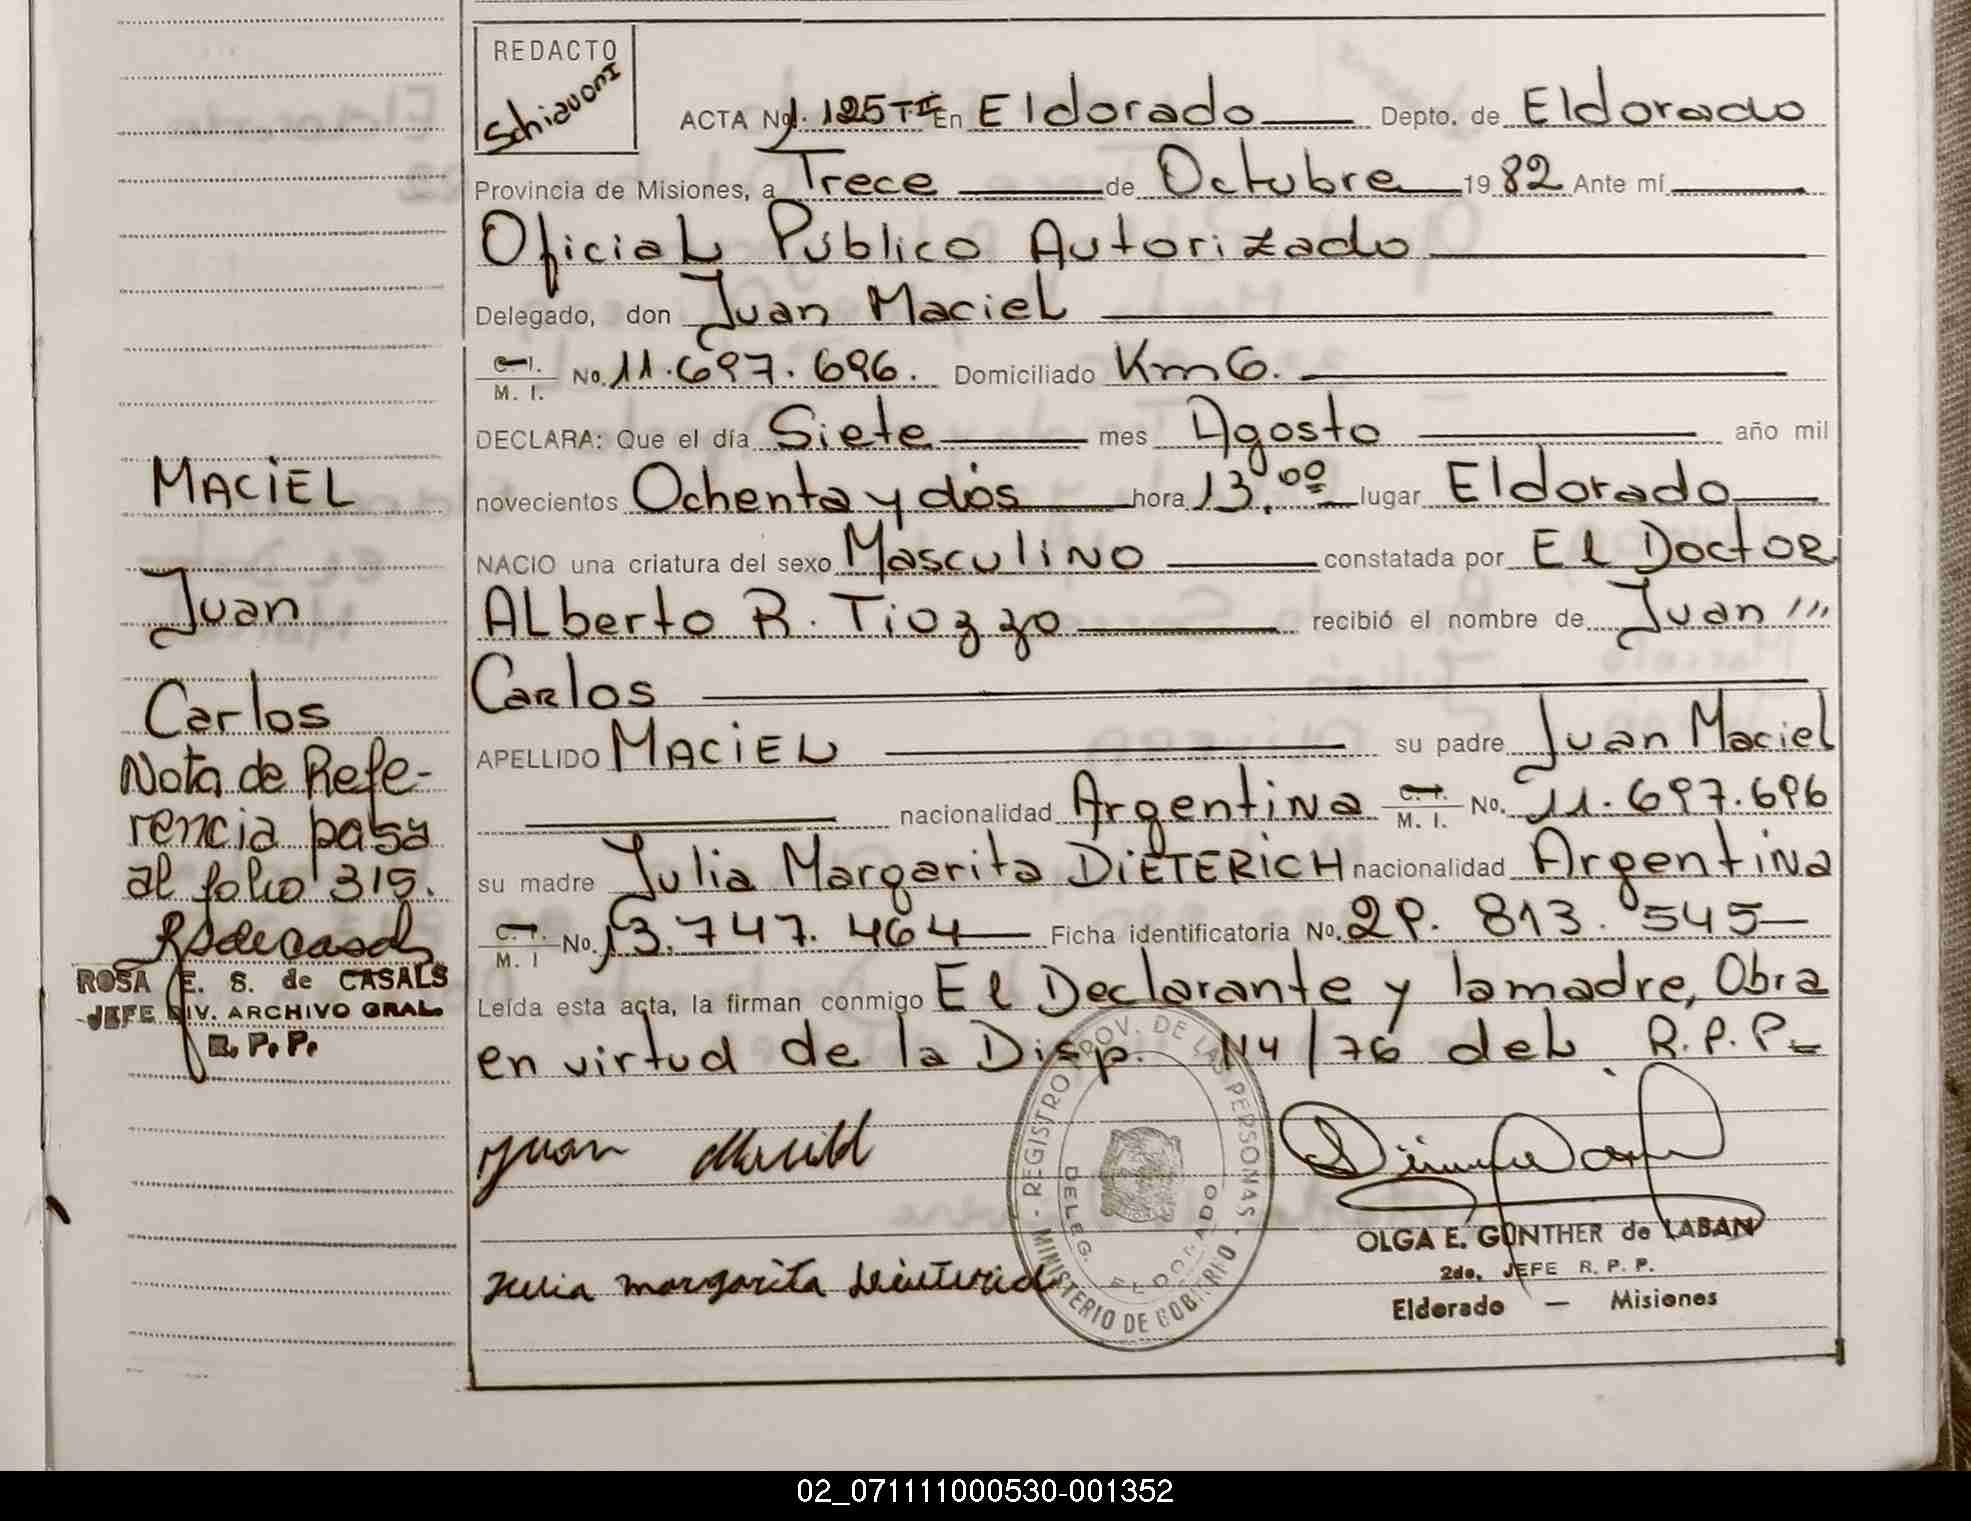 REDACTO
Schiavoni
ACTA No. 1.125 T II En Eldorado Depto. de Eldorado
Provincia de Misiones, a Trece de Octubre 19 82 Ante mí
Oficial Público Autorizado
Delegado, don Juan Maciel
C. I.
M. I. No. 11.697.696. Domiciliado Km 6.
DECLARA: Que el día Siete mes Agosto año mil
novecientos Ochenta y dos hora 13.00 lugar Eldorado
NACIO una criatura del sexo Masculino constatada por El Doctor
Alberto R. Tiozzo recibió el nombre de Juan
Carlos
APELLIDO MACIEL su padre Juan Maciel
nacionalidad Argentina C. I. M. I. No. 11.697.696
su madre Julia Margarita DIETERICH nacionalidad Argentina
C. I.
M. I No. 13.747.464 Ficha identificatoria No. 2P. 813. 545
Leída esta acta, la firman conmigo El Declarante y la madre, Obra
en virtud de la Disp. 114/76 del R.P.P.
Juan Maciel
Julia margarita Dieterich
MACIEL
Juan
Carlos
Nota de Refe-
rencia pasa
al folio 315.
ROSA E. S. de CASALS
JEFE DIV. ARCHIVO GRAL.
R. P. P.
REGISTRO PROV. DE LAS PERSONAS
MINISTERIO DE GOBIERNO
DELEG. ELDORADO
OLGA E. GUNTHER de LABAN
2do. JEFE R. P. P.
Eldorado — Misiones
02_071111000530-001352